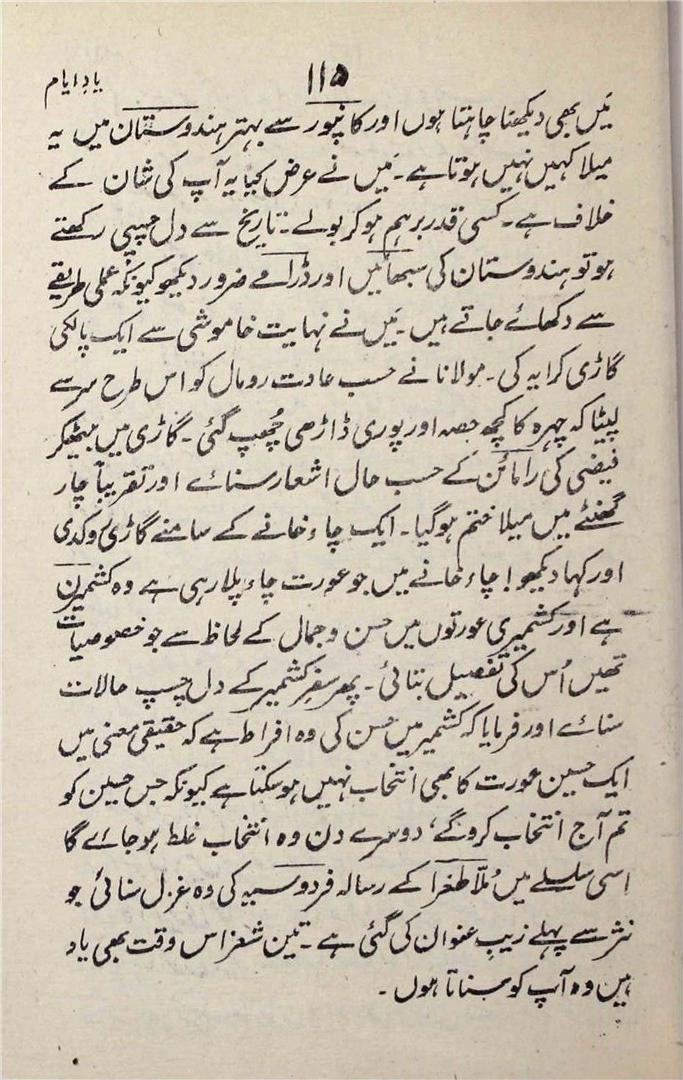 یادِ ایام
۱۱۵
میں بھی دیکھنا چاہتا ہوں اور کانپور سے بہتر ہندوستان میں یہ
میلا کہیں نہیں ہوتا ہے۔ میں نے عرض کیا یہ آپ کی شان کے
خلاف ہے۔ کسی قدر برہم ہو کر بولے۔ تاریخ سے دل چسپی رکھتے
ہو تو ہندوستان کی سبھائیں اور ڈرامے ضرور دیکھو کیونکہ عملی طریقے
سے دکھائے جاتے ہیں۔ میں نے نہایت خاموشی سے ایک پالکی
گاڑی کرایہ کی۔ مولانا نے حسب عادت رومال کو اس طرح سر سے
لپیٹا کہ چہرہ کا کچھ حصہ اور پوری ڈاڑھی چُھپ گئی۔ گاڑی میں بیٹھکر
فیضی کی رامائن کے حسب حال اشعار سنائے اور تقریباً چار
گھنٹے میں میلا ختم ہو گیا۔ ایک چاء خانے کے سامنے گاڑی روکدی
اور کہا دیکھو! چاء خانے میں جو عورت چاء پلا رہی ہے وہ کشمیرن
ہے اور کشمیری عورتوں میں حسن و جمال کے لحاظ سے جو خصوصیات
تھیں اُس کی تفصیل بتائی۔ پھر سفرِ کشمیر کے دل چسپ حالات
سنائے اور فرمایا کہ کشمیر میں حسن کی وہ افراط ہے کہ حقیقی معنی میں
ایک حسین عورت کا بھی انتخاب نہیں ہو سکتا ہے کیونکہ جس حسین کو
تم آج انتخاب کرو گے، دوسرے دن وہ انتخاب غلط ہو جائے گا
اسی سلسلے میں مُلّا طغرا کے رسالہ فردوسیہ کی وہ غزل سنائی جو
نثر سے پہلے زیب عنوان کی گئی ہے۔ تین شعر اس وقت بھی یاد
ہیں وہ آپ کو سناتا ہوں۔